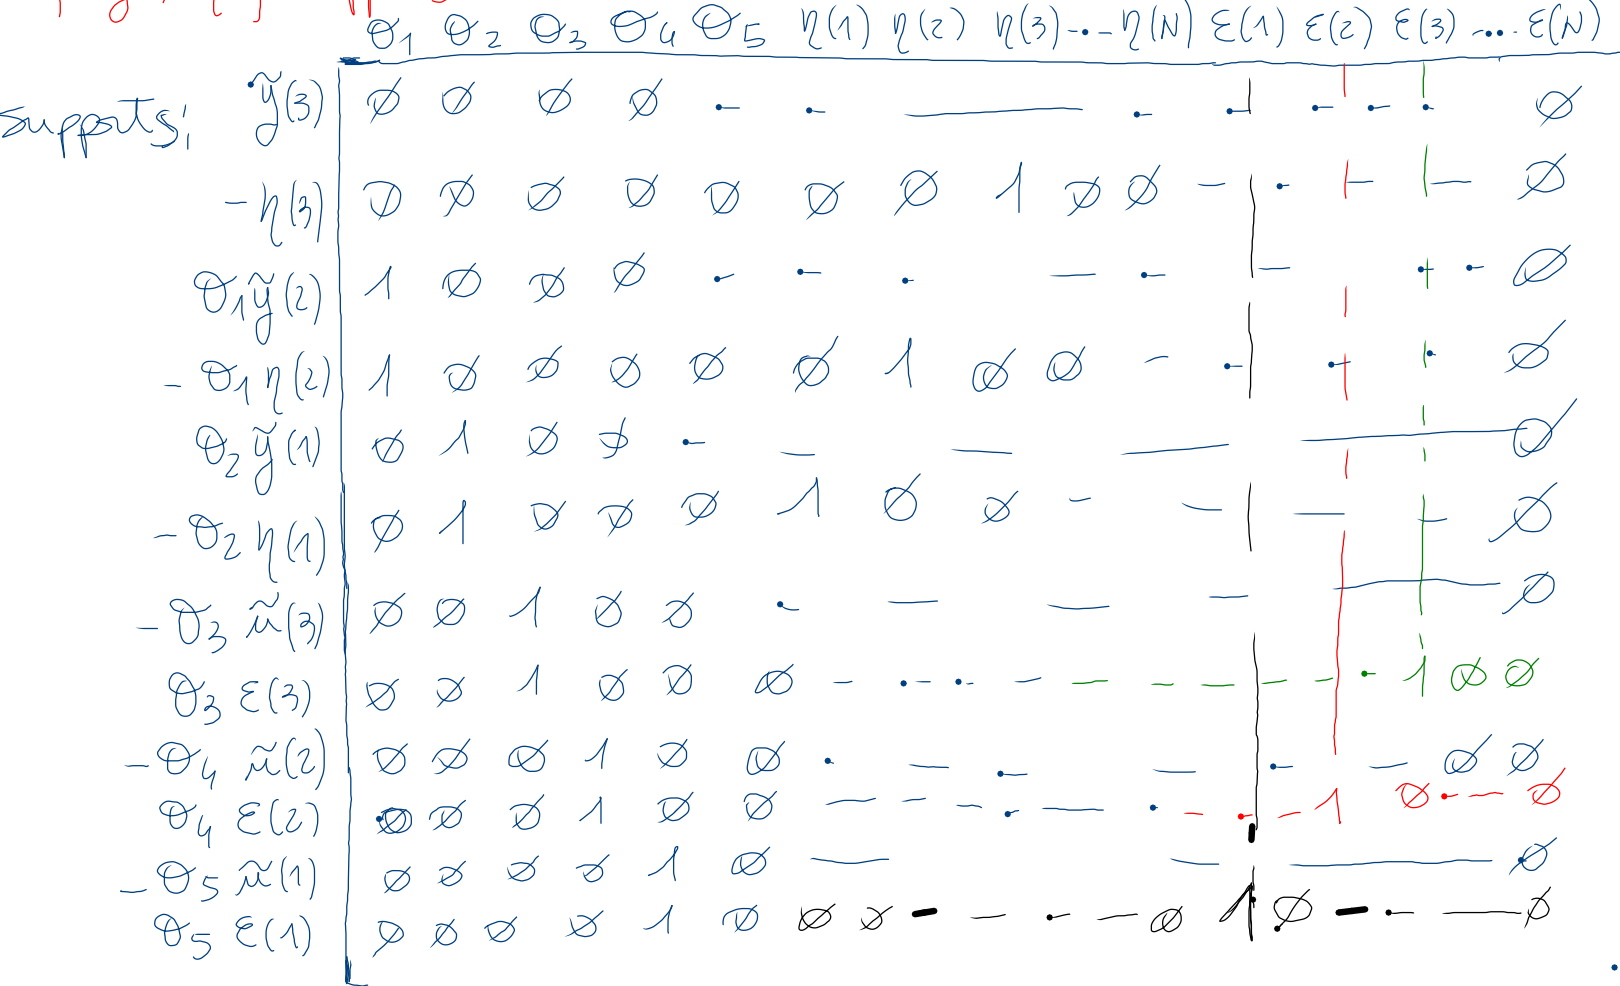 θ₁ θ₂ θ₃ θ₄ θ₅ η(1) η(2) η(3) ·-·- η(N) ε(1) ε(2) ε(3) -··· ε(N)
supports; ỹ(3) ∅ ∅ ∅ ∅ ·- ·- — ·- ·- ·- ·- · ∅
-η(3) ∅ ∅ ∅ ∅ ∅ ∅ ∅ 1 ∅ ∅ - ·- - - ∅
θ₁ỹ(2) 1 ∅ ∅ ∅ ·- ·- ·- - ·- - ·- ·- ∅
-θ₁η(2) 1 ∅ ∅ ∅ ∅ ∅ 1 ∅ ∅ - ·- ·- · ∅
θ₂ỹ(1) ∅ 1 ∅ ∅ ·- - - - — ∅
-θ₂η(1) ∅ 1 ∅ ∅ ∅ 1 ∅ ∅ - - - - ∅
-θ₃ũ(3) ∅ ∅ 1 ∅ ∅ ·- - - - — ∅
θ₃ε(3) ∅ ∅ 1 ∅ ∅ ∅ - ·- ·- - - - - - - ·- 1 ∅ ∅
-θ₄ũ(2) ∅ ∅ ∅ 1 ∅ ∅ · - ·- - ·- - ∅ ∅
θ₄ε(2) ∅ ∅ ∅ 1 ∅ ∅ - - - ·- - ·- - ·- - 1 ∅ ·- - ∅
-θ₅ũ(1) ∅ ∅ ∅ ∅ 1 ∅ — - — ∅
θ₅ε(1) ∅ ∅ ∅ ∅ 1 ∅ ∅ ∅ - - ·- - ∅ 1 ∅ - ·- — ∅